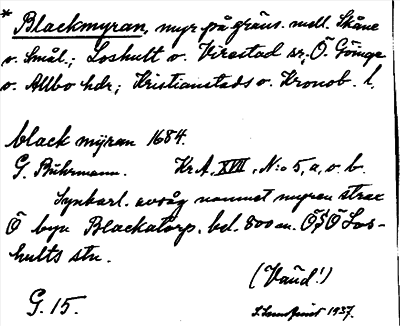 * Blackmyran, myr på gräns. mell. Skåne
o. Smål.; Loshult o. Virestad sr; Ö. Göinge
o. Allbo hdr; Kristianstads o. Kronob. l.
black mÿran 1684.
G. Buhrmann. KrA, XVII, N:o 5, a, o. b.
Synbarl. avsåg namnet myren strax
Ö byn Blackatorp, bel. 800 m. ÖSÖ Los-
hults stn.
(Vaüd!)
G. 15. 1937.